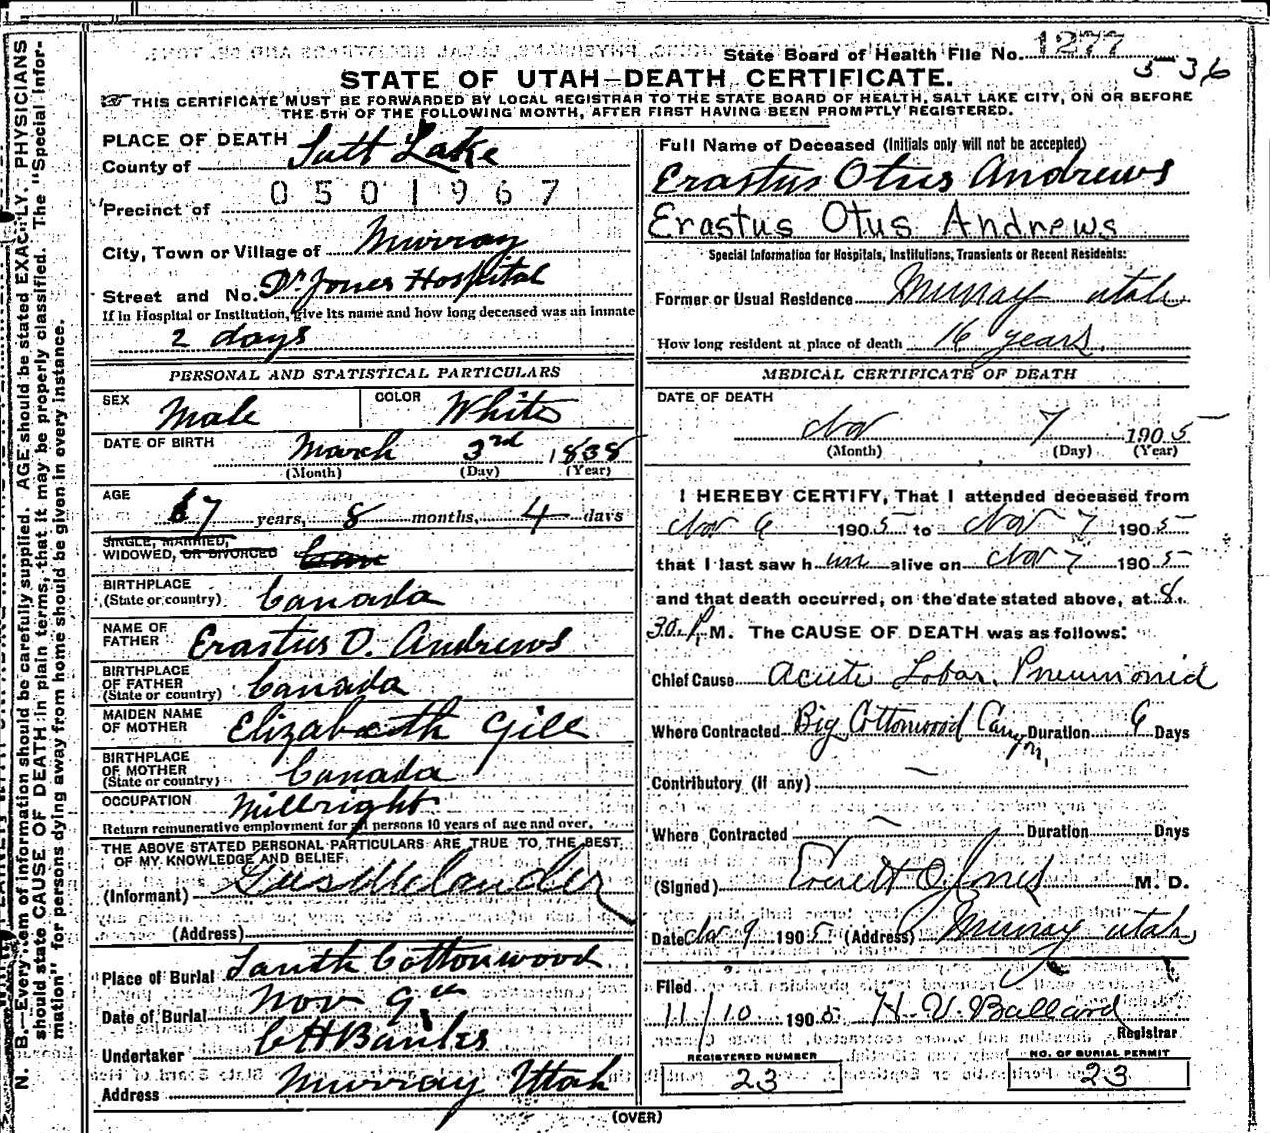 State Board of Health File No. 1277
536
STATE OF UTAH—DEATH CERTIFICATE.
THIS CERTIFICATE MUST BE FORWARDED BY LOCAL REGISTRAR TO THE STATE BOARD OF HEALTH, SALT LAKE CITY, ON OR BEFORE
THE 5TH OF THE FOLLOWING MONTH, AFTER FIRST HAVING BEEN PROMPTLY REGISTERED.
PLACE OF DEATH
County of Salt Lake
0501967
Precinct of
City, Town or Village of Murray
Street and No. Dr. Jones Hospital
If in Hospital or Institution, give its name and how long deceased was an inmate
2 days
PERSONAL AND STATISTICAL PARTICULARS
SEX Male COLOR White
DATE OF BIRTH March 3rd 1838
(Month) (Day) (Year)
AGE
67 years, 8 months, 4 days
SINGLE, MARRIED,
WIDOWED, OR DIVORCED Can
BIRTHPLACE
(State or country) Canada
NAME OF
FATHER Erastus D. Andrews
BIRTHPLACE
OF FATHER
(State or country) Canada
MAIDEN NAME
OF MOTHER Elizabeth Gill
BIRTHPLACE
OF MOTHER
(State or country) Canada
OCCUPATION Millright
Return remunerative employment for all persons 10 years of age and over.
THE ABOVE STATED PERSONAL PARTICULARS ARE TRUE TO THE BEST
OF MY KNOWLEDGE AND BELIEF
(Informant) Gus Melander
(Address)
Place of Burial South Cottonwood
Date of Burial Nov 9th
Undertaker C H Banks
Address Murray Utah
Full Name of Deceased (Initials only will not be accepted)
Erastus Otus Andrews
Erastus Otus Andrews
Special Information for Hospitals, Institutions, Transients or Recent Residents:
Former or Usual Residence Murray Utah
How long resident at place of death 16 years.
MEDICAL CERTIFICATE OF DEATH
DATE OF DEATH
Nov 7 1905
(Month) (Day) (Year)
I HEREBY CERTIFY, That I attended deceased from
Nov 6 1905 to Nov 7 1905
that I last saw him alive on Nov 7 1905
and that death occurred, on the date stated above, at 8.
30 P. M. The CAUSE OF DEATH was as follows:
Chief Cause Acute Lobar Pneumonia
Where Contracted Big Cottonwood Canyn, Duration 6 Days
Contributory (if any) —
Where Contracted — Duration Days
(Signed) Everett O Jones M. D.
Date Nov 9 1905 (Address) Murray Utah
Filed
11/10 1905 H. V. Ballard
Registrar
REGISTERED NUMBER
23
NO. OF BURIAL PERMIT
23
(OVER)
N. B.—Every item of information should be carefully supplied. AGE should be stated EXACTLY. PHYSICIANS
should state CAUSE OF DEATH in plain terms, that it may be properly classified. The "Special Infor-
mation" for persons dying away from home should be given in every instance.